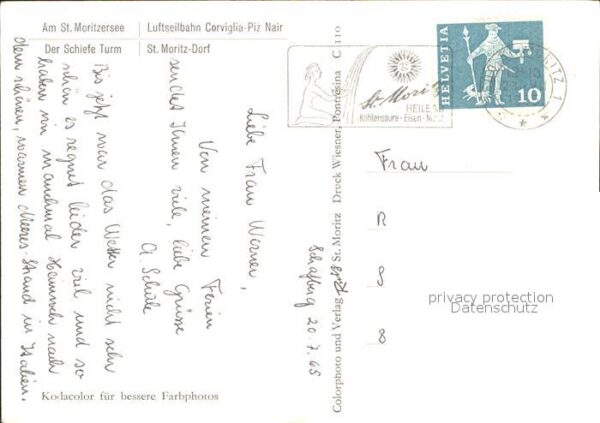 Am St. Moritzersee
Luftseilbahn Corviglia-Piz Nair
Der Schiefe Turm
St. Moritz-Dorf
Liebe Frau Werner,
Von meinen Ferien
sendet Ihnen viele, liebe Grüsse
A. Schüle
Bis jetzt war das Wetter nicht sehr
schön es regnet leider viel und so
haben wir manchmal Heimweh nach
dem schönen, warmen Meeres-Strand in Italien.
Kodacolor für bessere Farbphotos
Colorphoto und Verlag St. Moritz Druck Wiesner, Pontresina C 110
Schafberg 20.7.65
St. Moritz
HEILBAD
Kohlensäure-Eisen-Moor
HELVETIA
10
Frau
R
S
8
privacy protection
Datenschutz